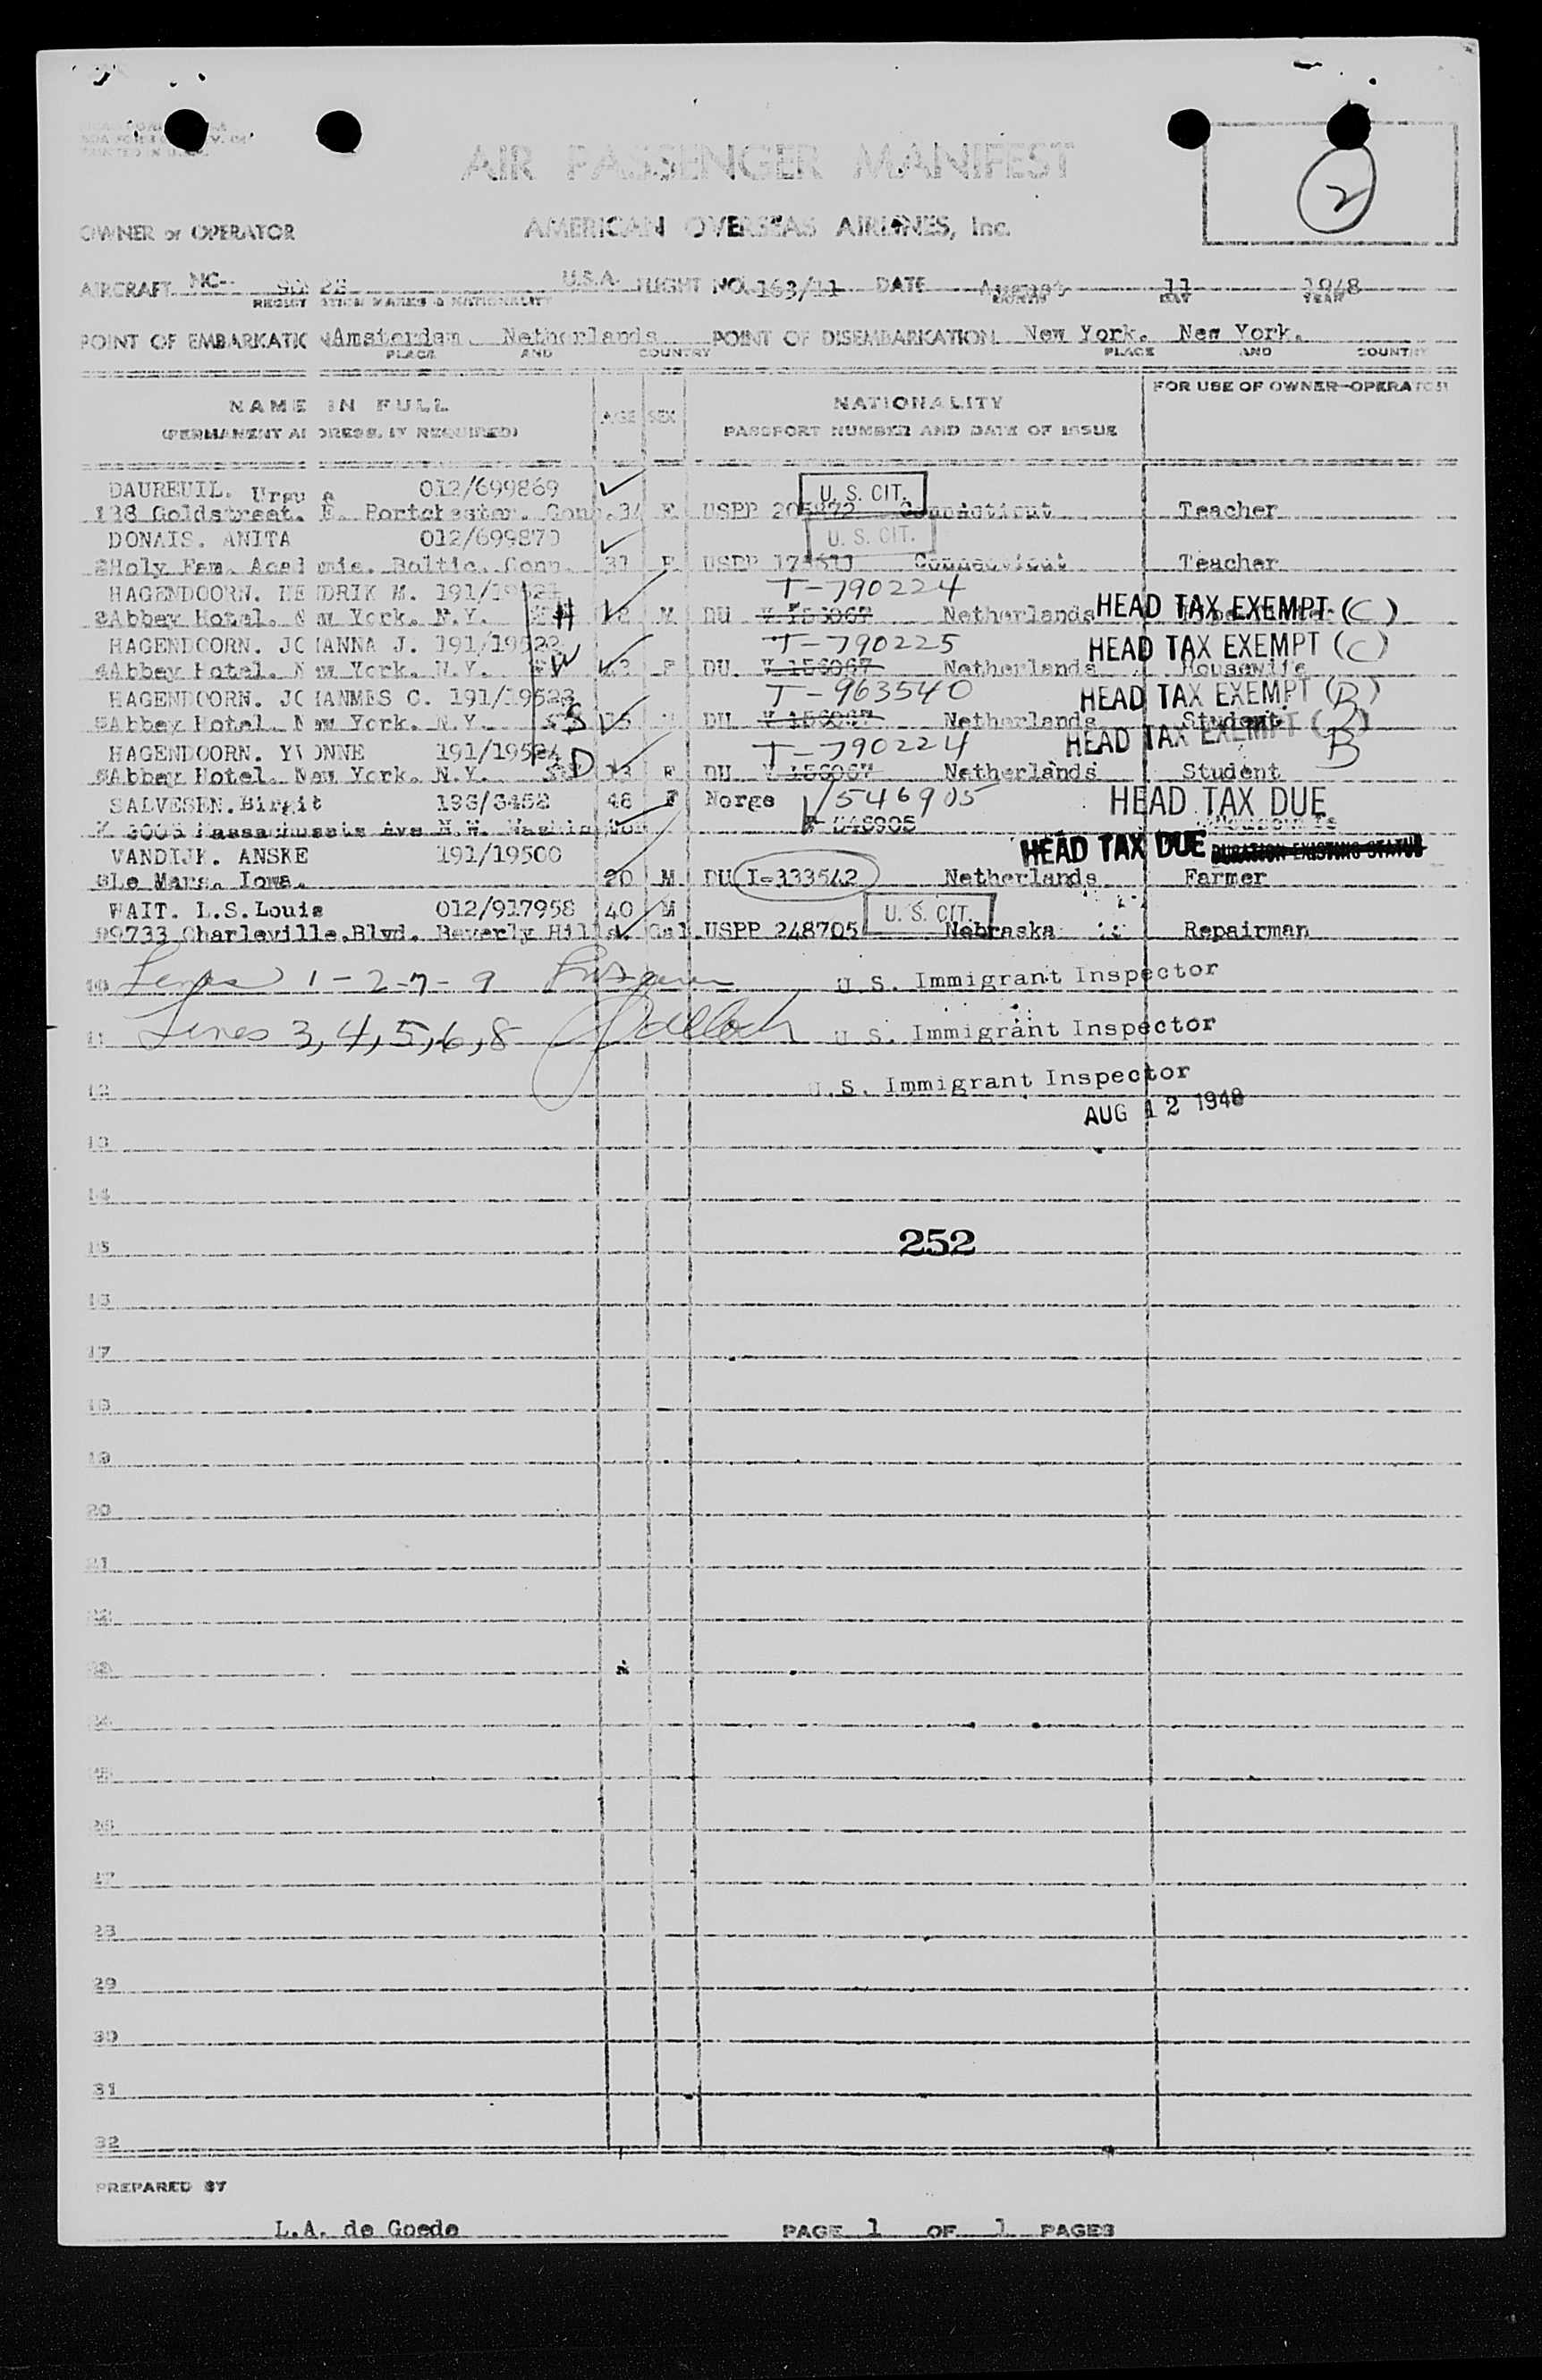 2
AIR PASSENGER MANIFEST
OWNER or OPERATOR AMERICAN OVERSEAS AIRLINES, Inc.
AIRCRAFT NC- U.S.A. FLIGHT NO. 163/11 DATE August 11 1948
MARKS & NATIONALITY MONTH DAY YEAR
POINT OF Amsterdam. Netherlands POINT OF DISEMBARKATION New York. New York.
PLACE AND COUNTRY PLACE AND COUNTRY
NAME IN FULL AGE SEX NATIONALITY FOR USE OF OWNER-OPERATOR
(PERMANENT ADDRESS, IF REQUIRED) PASSPORT NUMBER AND DATE OF ISSUE
DAUREUIL. 012/699869 U. S. CIT.
Goldstreet. E. Portchester. Conn. 34 F USPP Connecticut Teacher
DONAIS. ANITA 012/699870 U. S. CIT.
Holy Fam. Baltic. Conn. 31 F USPP Connecticut Teacher
HAGENDOORN. HENDRIK M. T-790224
Abbey Hotel. New York. N.Y. H M DU Netherlands HEAD TAX EXEMPT (C)
HAGENDOORN. JOHANNA J. 191/19522 T-790225 HEAD TAX EXEMPT (C)
Abbey Hotel. New York. N.Y. W 43 F DU. V 156067 Netherlands Housewife
HAGENDOORN. JOHANNES C. 191/19523 T-963540 HEAD TAX EXEMPT (B)
Abbey Hotel. New York. N.Y. S DU V 156067 Netherlands Student
HAGENDOORN. YVONNE 191/19524 T-790224 HEAD TAX EXEMPT B
Abbey Hotel. New York. N.Y. D 13 F DU V 156067 Netherlands Student
SALVESEN. Birgit 46 F Norge 546905 HEAD TAX DUE
Massachussets Ave N.W. Washington 546905
VANDIJK. ANSKE 191/19500 HEAD TAX DUE DURATION EXISTING STATUS
Le Mars. Iowa. 20 M DU I-333542 Netherlands Farmer
WAIT. L.S. Louis 012/917958 40 M U. S. CIT.
9733 Charleville. Blvd. Beverly Hills. Cal USPP 248705 Nebraska Repairman
10 Lines 1-2-7-9 U. S. Immigrant Inspector
11 Lines 3,4,5,6,8 U. S. Immigrant Inspector
12 U.S. Immigrant Inspector
AUG 12 1948
13
14
15 252
16
17
18
19
20
21
22
23
24
25
26
27
28
29
30
31
32
PREPARED BY
L.A. de Goede PAGE 1 OF 1 PAGES